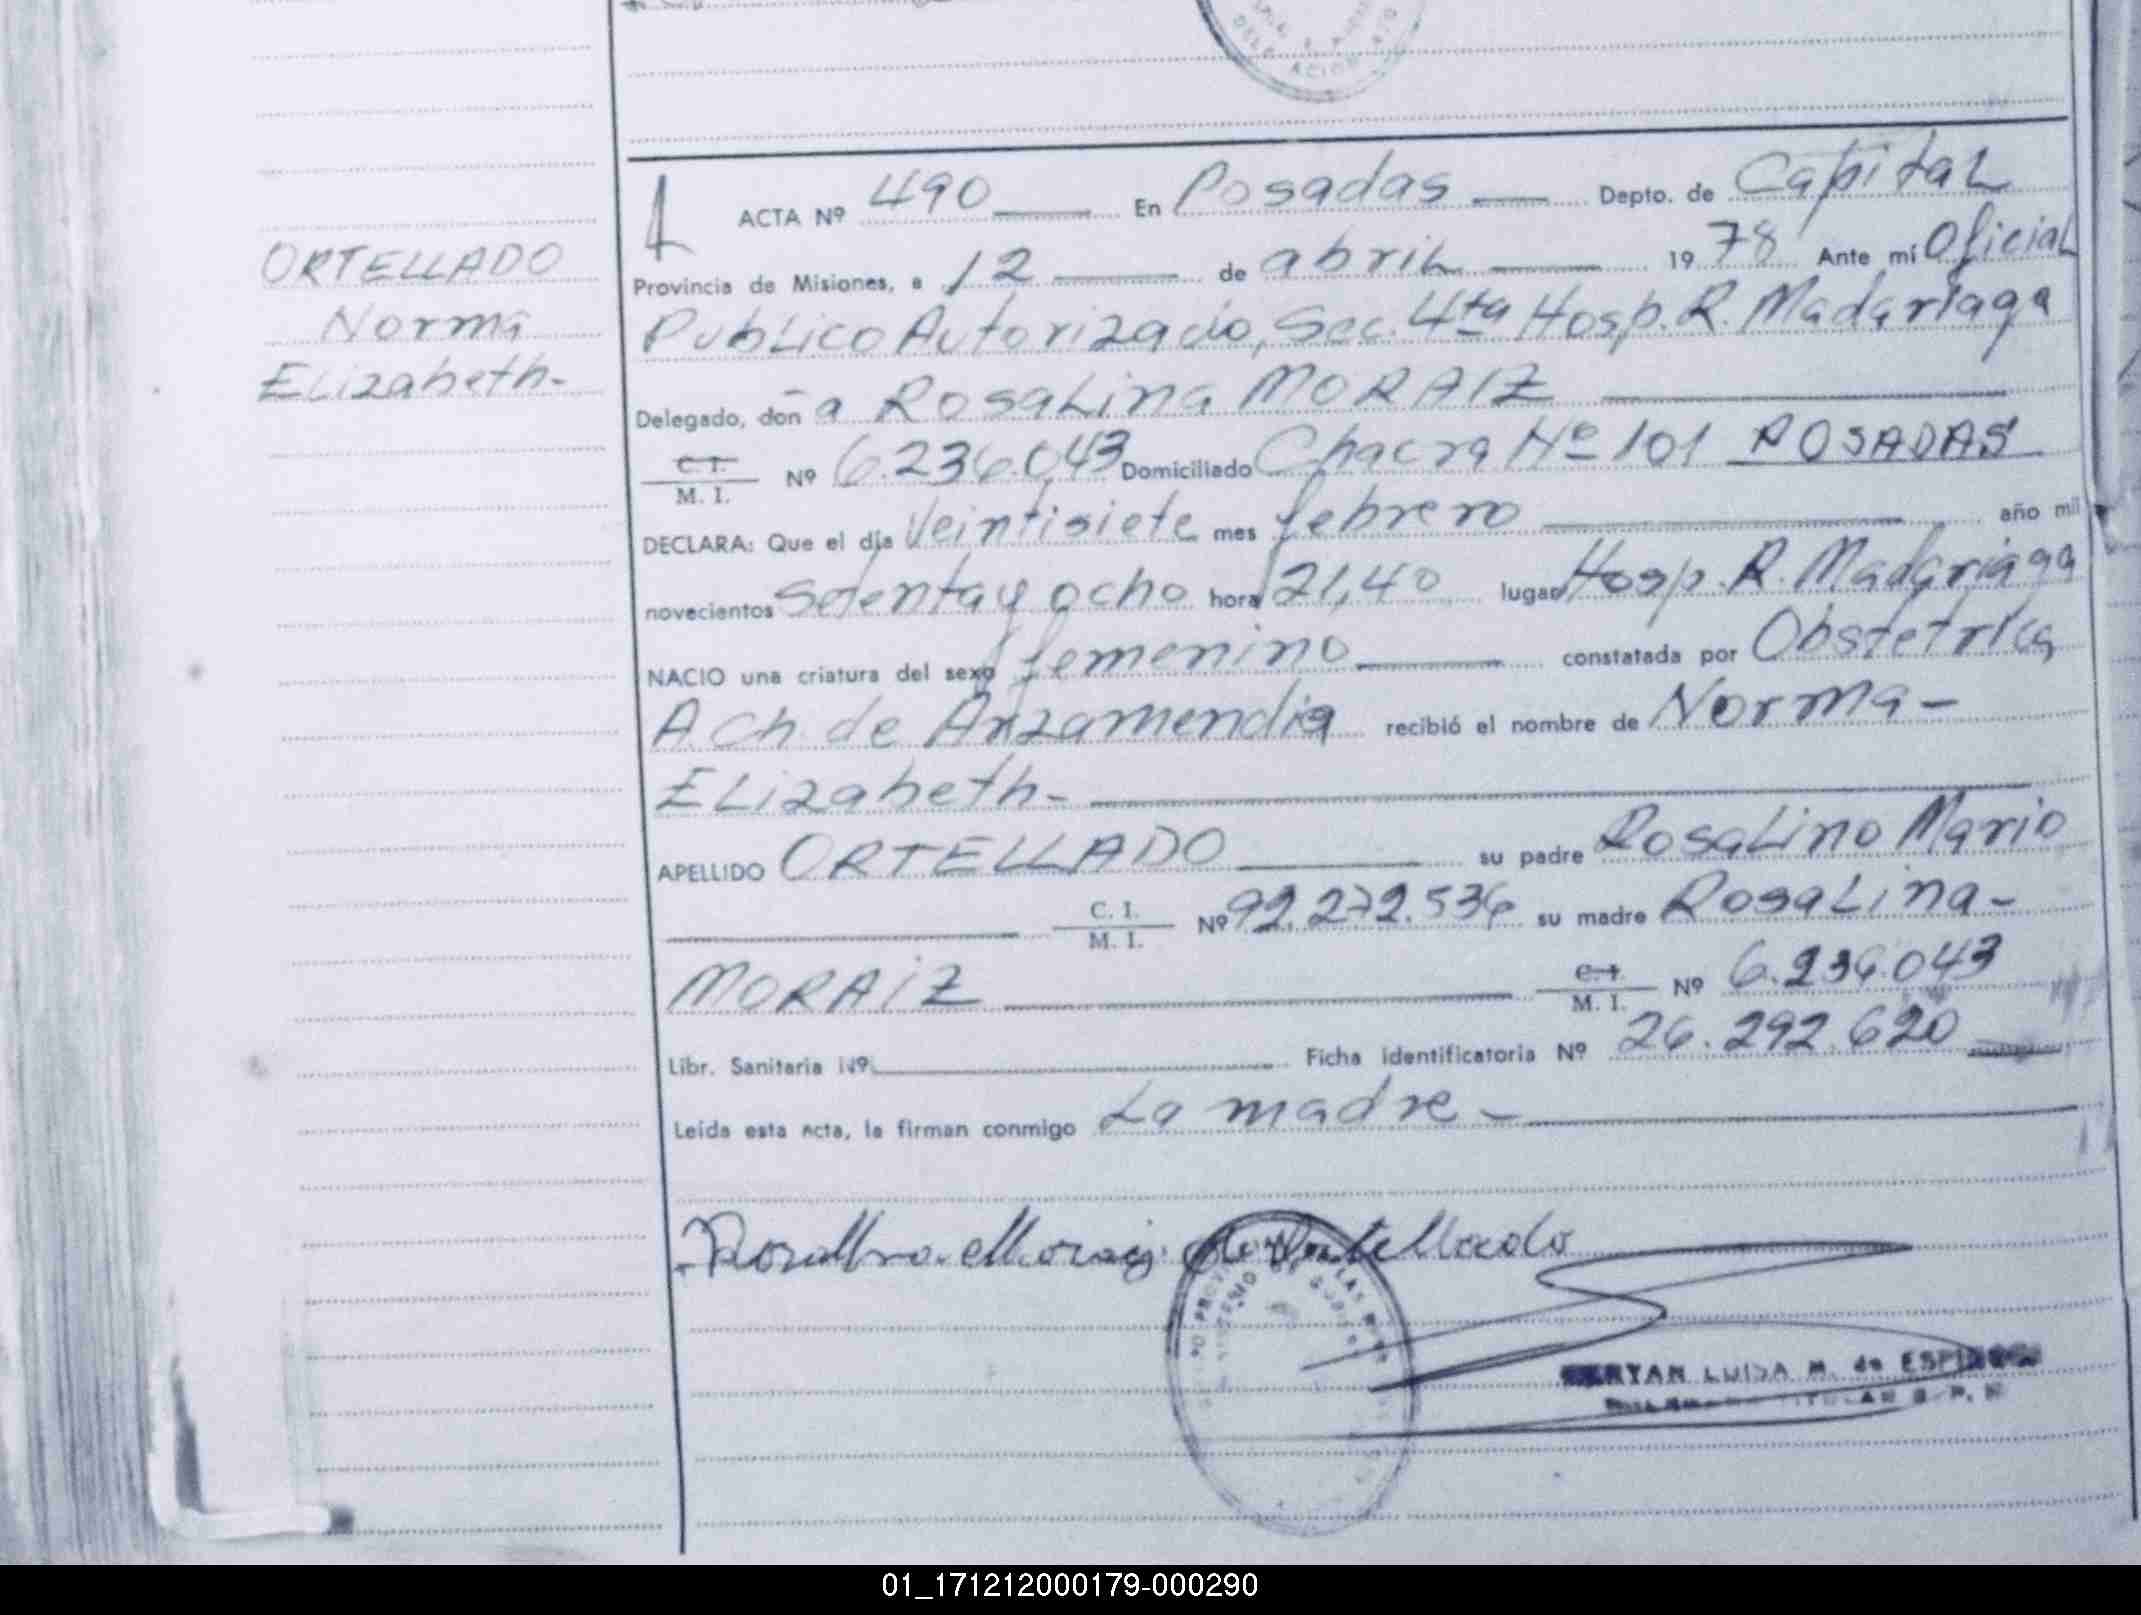 ACTA Nº 490 En Posadas Depto. de Capital
Provincia de Misiones, a 12 de abril 1978 Ante mí Oficial
Publico Autorizado, Sec. 4ta Hosp. R. Madariaga
Delegado, don a Rosalina MORAIZ
C. I.
M. I. Nº 6.236.043 Domiciliado Chacra Nº 101 POSADAS
DECLARA: Que el día Veintisiete mes febrero año mil
novecientos Setenta y ocho hora 21,40 lugar Hosp. R. Madariaga
NACIO una criatura del sexo femenino constatada por Obstetrica
A. Ch. de Arzamendia recibió el nombre de Norma -
Elizabeth -
APELLIDO ORTELLADO su padre Rosalino Mario
C. I.
M. I. Nº 92.272.536 su madre Rosalina -
MORAIZ C. I.
M. I. Nº 6.236.043
Libr. Sanitaria Nº Ficha identificatoria Nº 26.292.620
Leída esta acta, la firman conmigo La madre -
ORTELLADO
Norma
Elizabeth -
Ortellado
LUISA M. de
01_171212000179-000290